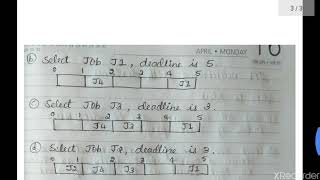 3 / 3
APRIL • MONDAY 10
(b) Select Job J1, deadline is 5.
0 1 2 3 4 5
J4 J1
(c) Select Job J3, deadline is 3.
0 1 2 3 4 5
J4 J3 J1
(d) Select Job J2, deadline is 3.
0 1 2 3 4 5
J2 J4 J3 J1
XRecorder